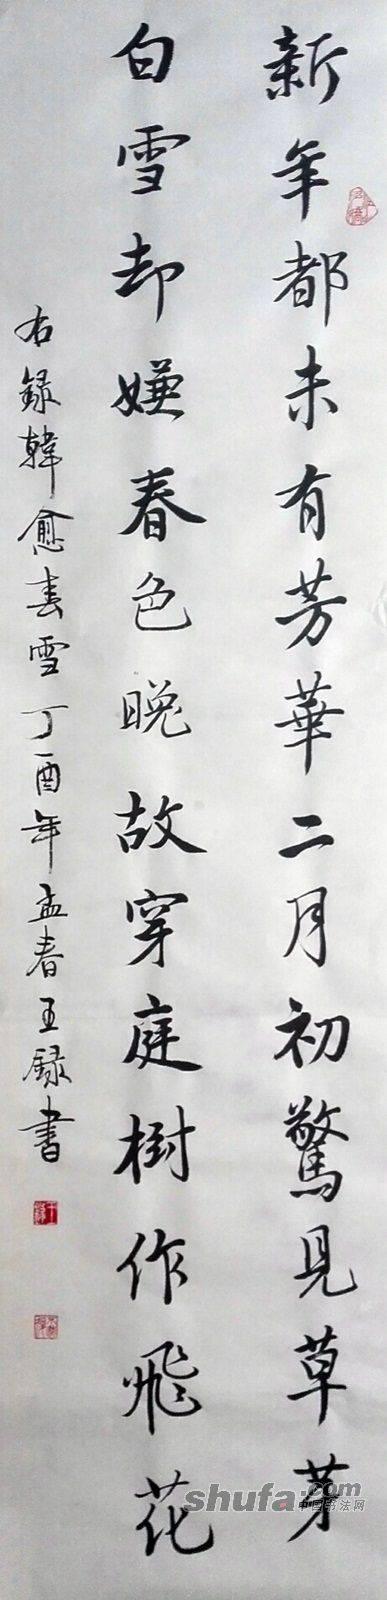 新年都未有芳華二月初驚見草芽
白雪却嫌春色晚故穿庭樹作飛花
右録韓愈春雪丁酉年孟春王録書
shufa.com
中国书法网